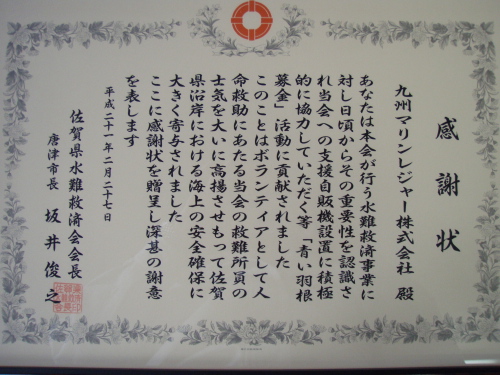 感謝状
九州マリンレジャー株式会社 殿
あなたは本会が行う水難救済事業に
対し日頃からその重要性を認識さ
れ当会への支援自販機設置に積極
的に協力していただく等「青い羽根
募金」活動に貢献されました
このことはボランティアとして人
命救助にあたる当会の救難所員の
士気を大いに高揚させもって佐賀
県沿岸における海上の安全確保に
大きく寄与されました
ここに感謝状を贈呈し深甚の謝意
を表します
平成二十一年二月二十七日
佐賀県水難救済会会長
唐津市長 坂井俊之